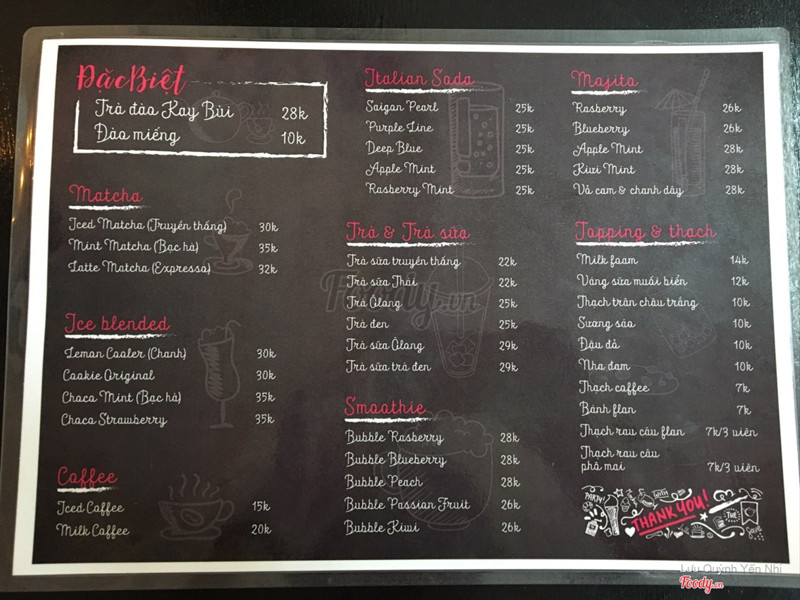 ĐặcBiệt
Trà đào Kay Bùi 28k
Đào miếng 10k
Matcha
Iced Matcha (Truyền thống) 30k
Mint Matcha (Bạc hà) 35k
Latte Matcha (Expresso) 32k
Ice blended
Lemon Cooler (Chanh) 30k
Cookie Original 30k
Choco Mint (Bạc hà) 35k
Choco Strawberry 35k
Coffee
Iced Coffee 15k
Milk Coffee 20k
Italian Soda
Saigon Pearl 25k
Purple Line 25k
Deep Blue 25k
Apple Mint 25k
Rasberry Mint 25k
Trà & Trà sữa
Trà sữa truyền thống 22k
Trà sữa Thái 22k
Trà Ôlong 25k
Trà đen 25k
Trà sữa Ôlong 29k
Trà sữa trà đen 29k
Smoothie
Bubble Rasberry 28k
Bubble Blueberry 28k
Bubble Peach 28k
Bubble Passion Fruit 26k
Bubble Kiwi 26k
Mojito
Rasberry 26k
Blueberry 26k
Apple Mint 28k
Kiwi Mint 28k
Vỏ cam & chanh dây 28k
Topping & thạch
Milk foam 14k
Váng sữa muối biển 12k
Thạch trân châu trắng 10k
Sương sáo 10k
Đậu đỏ 10k
Nha đam 10k
Thạch coffee 7k
Bánh flan 7k
Thạch rau câu flan 7k/3 viên
Thạch rau câu
phô mai 7k/3 viên
PARTY
THANK YOU!
Foody.vn
Lưu Quỳnh Yến Nhi
Foody.vn